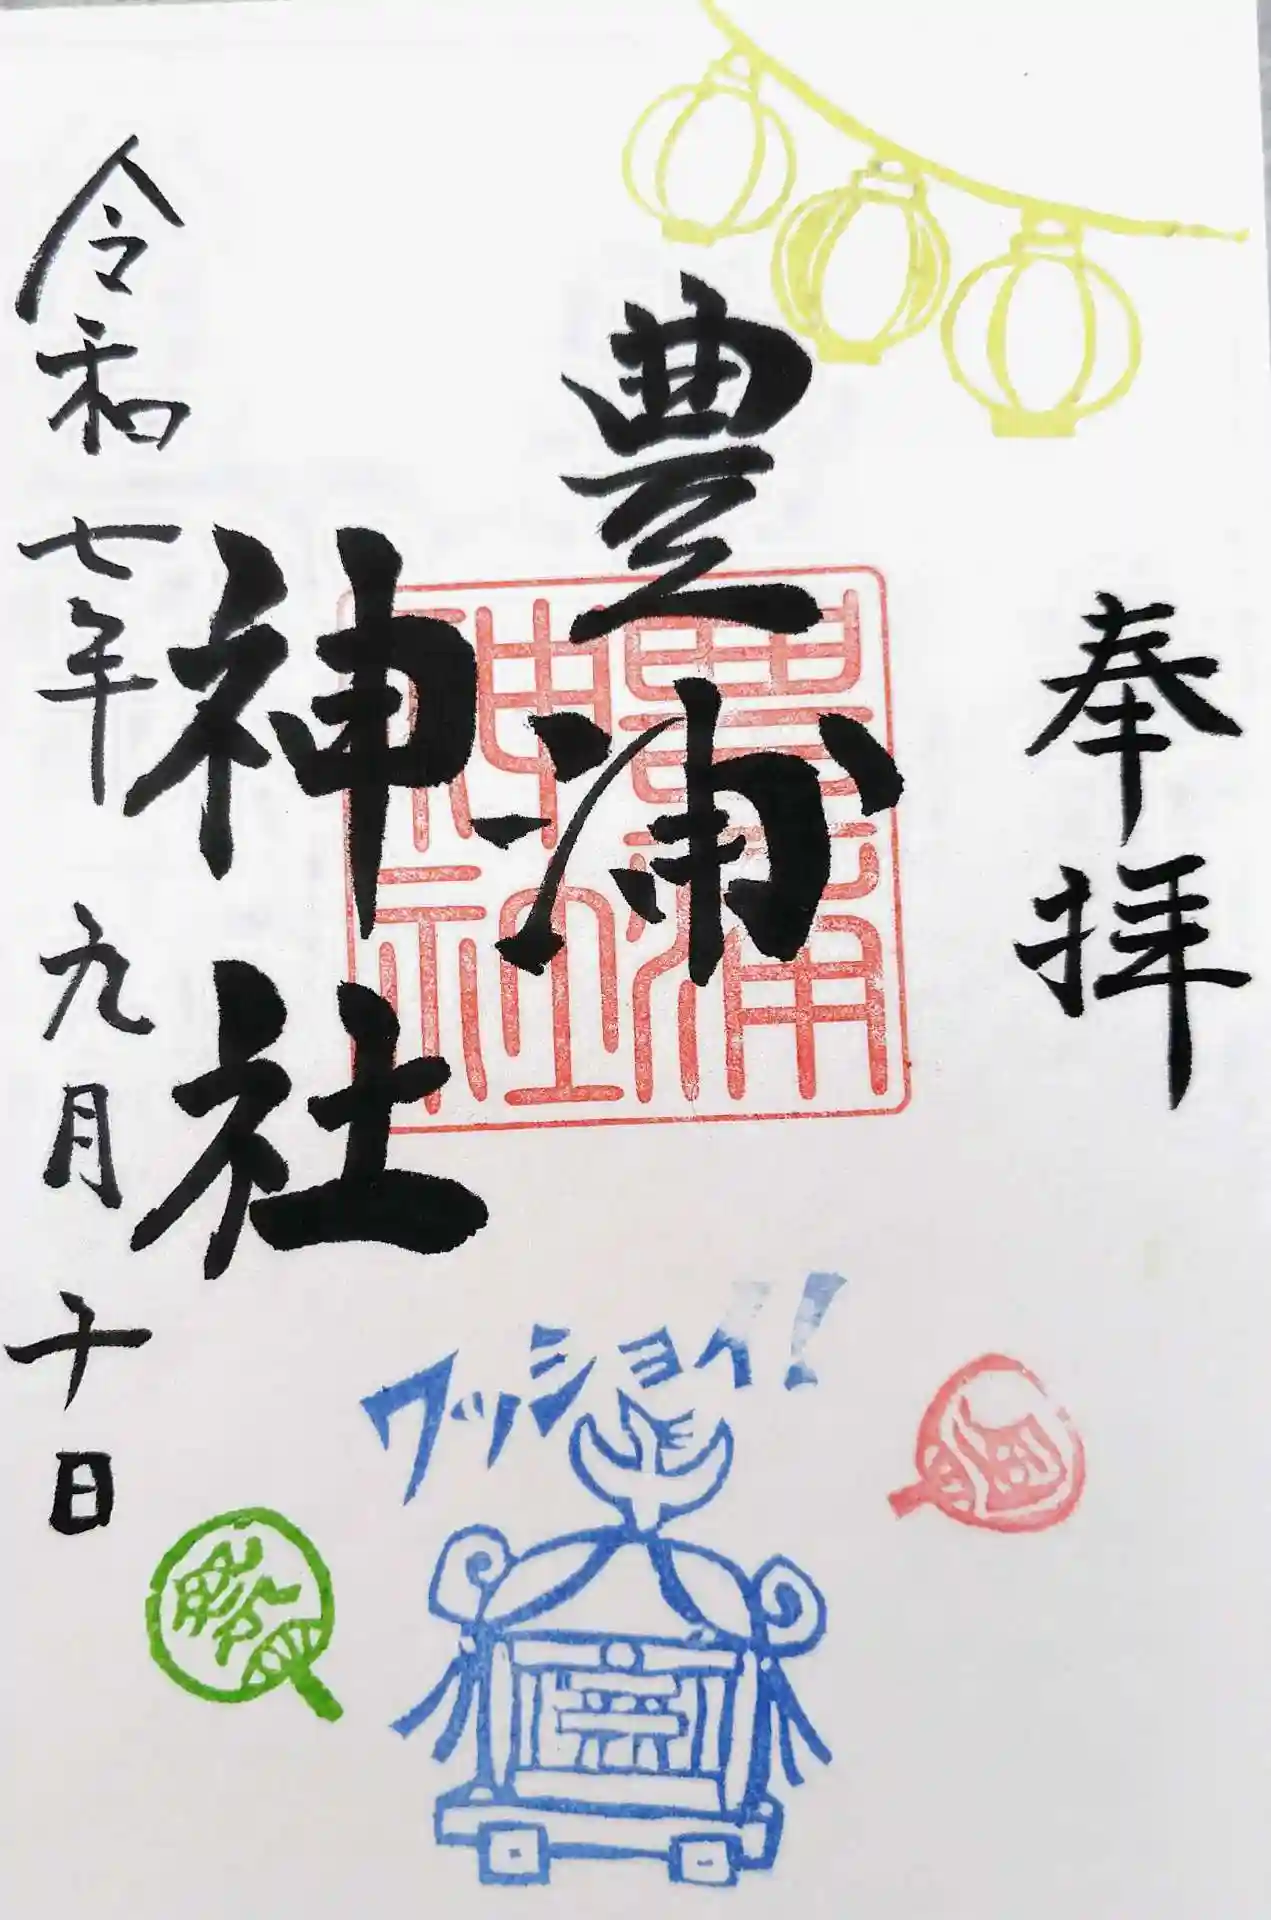 奉拝
豊浦
神社
令和七年 九月十日
豊浦
神社
ワッショイ!
祭